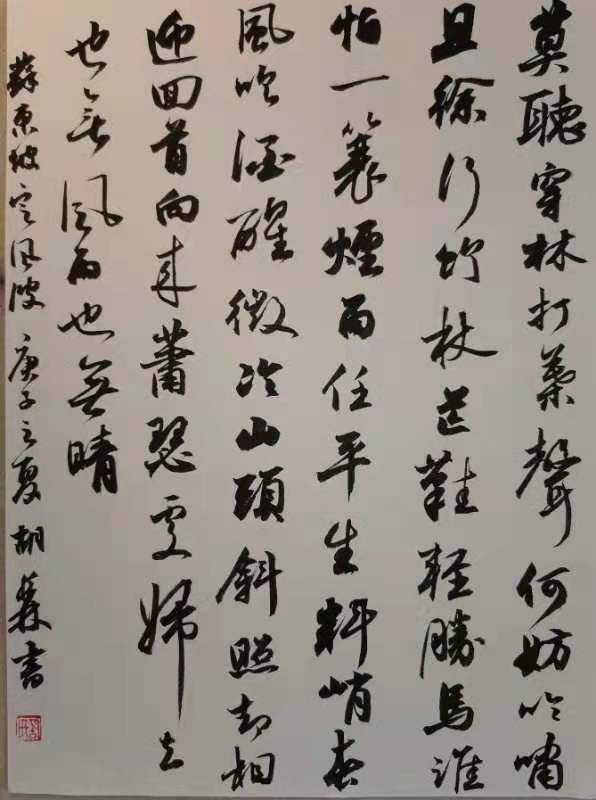 莫聽穿林打葉聲何妨吟嘯
且徐行竹杖芒鞋輕勝馬誰
怕一蓑煙雨任平生料峭春
風吹酒醒微冷山頭斜照却相
迎回首向來蕭瑟處歸去
也無風雨也無晴
蘇東坡定風波庚子之夏胡森書